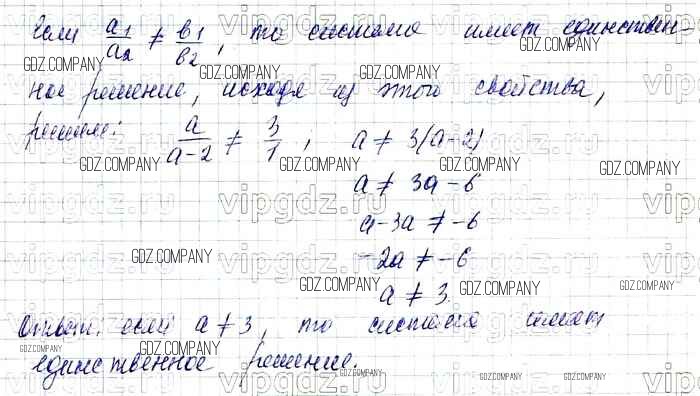 Если a₁/a₂ ≠ b₁/b₂, то система имеет единствен-
ное решение, исходя из этого свойства,
решаем: a/(a-2) ≠ 3/1; a ≠ 3(a-2)
a ≠ 3a-6
a-3a ≠ -6
-2a ≠ -6
a ≠ 3.
Ответ: если a ≠ 3, то система имеет
единственное решение.
GDZ.COMPANY
vipgdz.ru